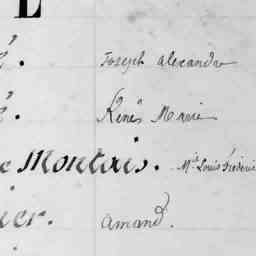 L
é. Joseph alexandre
é. Renés Marie
e Montais. Mie Louis frederic
ier. amand.